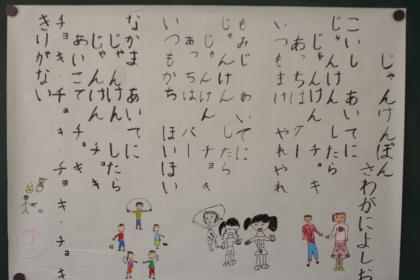 じゃんけんぽん
さわがによしお
こいし あいてに
じゃんけん したら
じゃんけん チョキ
あっちは グー
いつもまけ やれやれ
もみじ あいてに
じゃんけん したら
じゃんけん チョキ
あっちは パー
いつもかち ほいほい
なかま あいてに
じゃんけん したら
じゃんけん チョキ
あいこで チョキ
チョキ・チョキ・チョキ・チョキ
きりがない